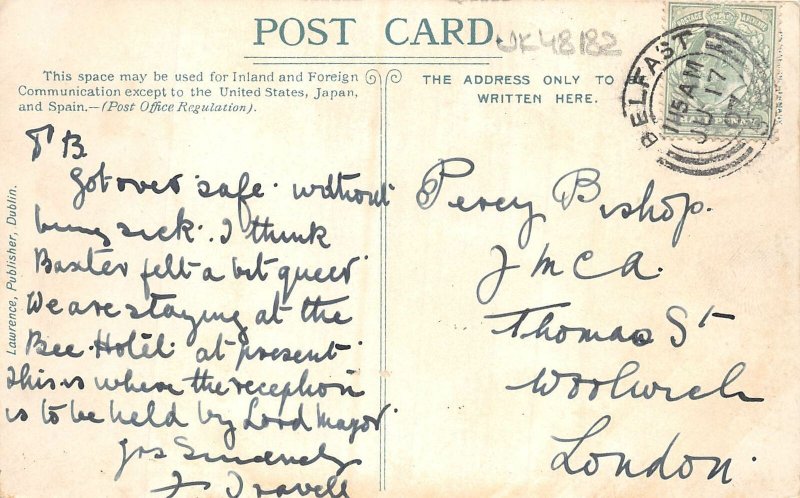 POST CARD.
UK48182
This space may be used for Inland and Foreign
Communication except to the United States, Japan,
and Spain.—(Post Office Regulation).
THE ADDRESS ONLY TO BE
WRITTEN HERE.
BELFAST
11 15 AM
17
HALFPENNY
Lawrence, Publisher, Dublin.
B.
Got over safe. without
being sick. I think
Baxter felt a bit queer
We are staying at the
Bee. Hotel. at present
This is where the reception
is to be held by Lord Mayor.
Yrs Sincerely
Percy Bishop.
YMCA.
Thomas St
Woolwich
London.